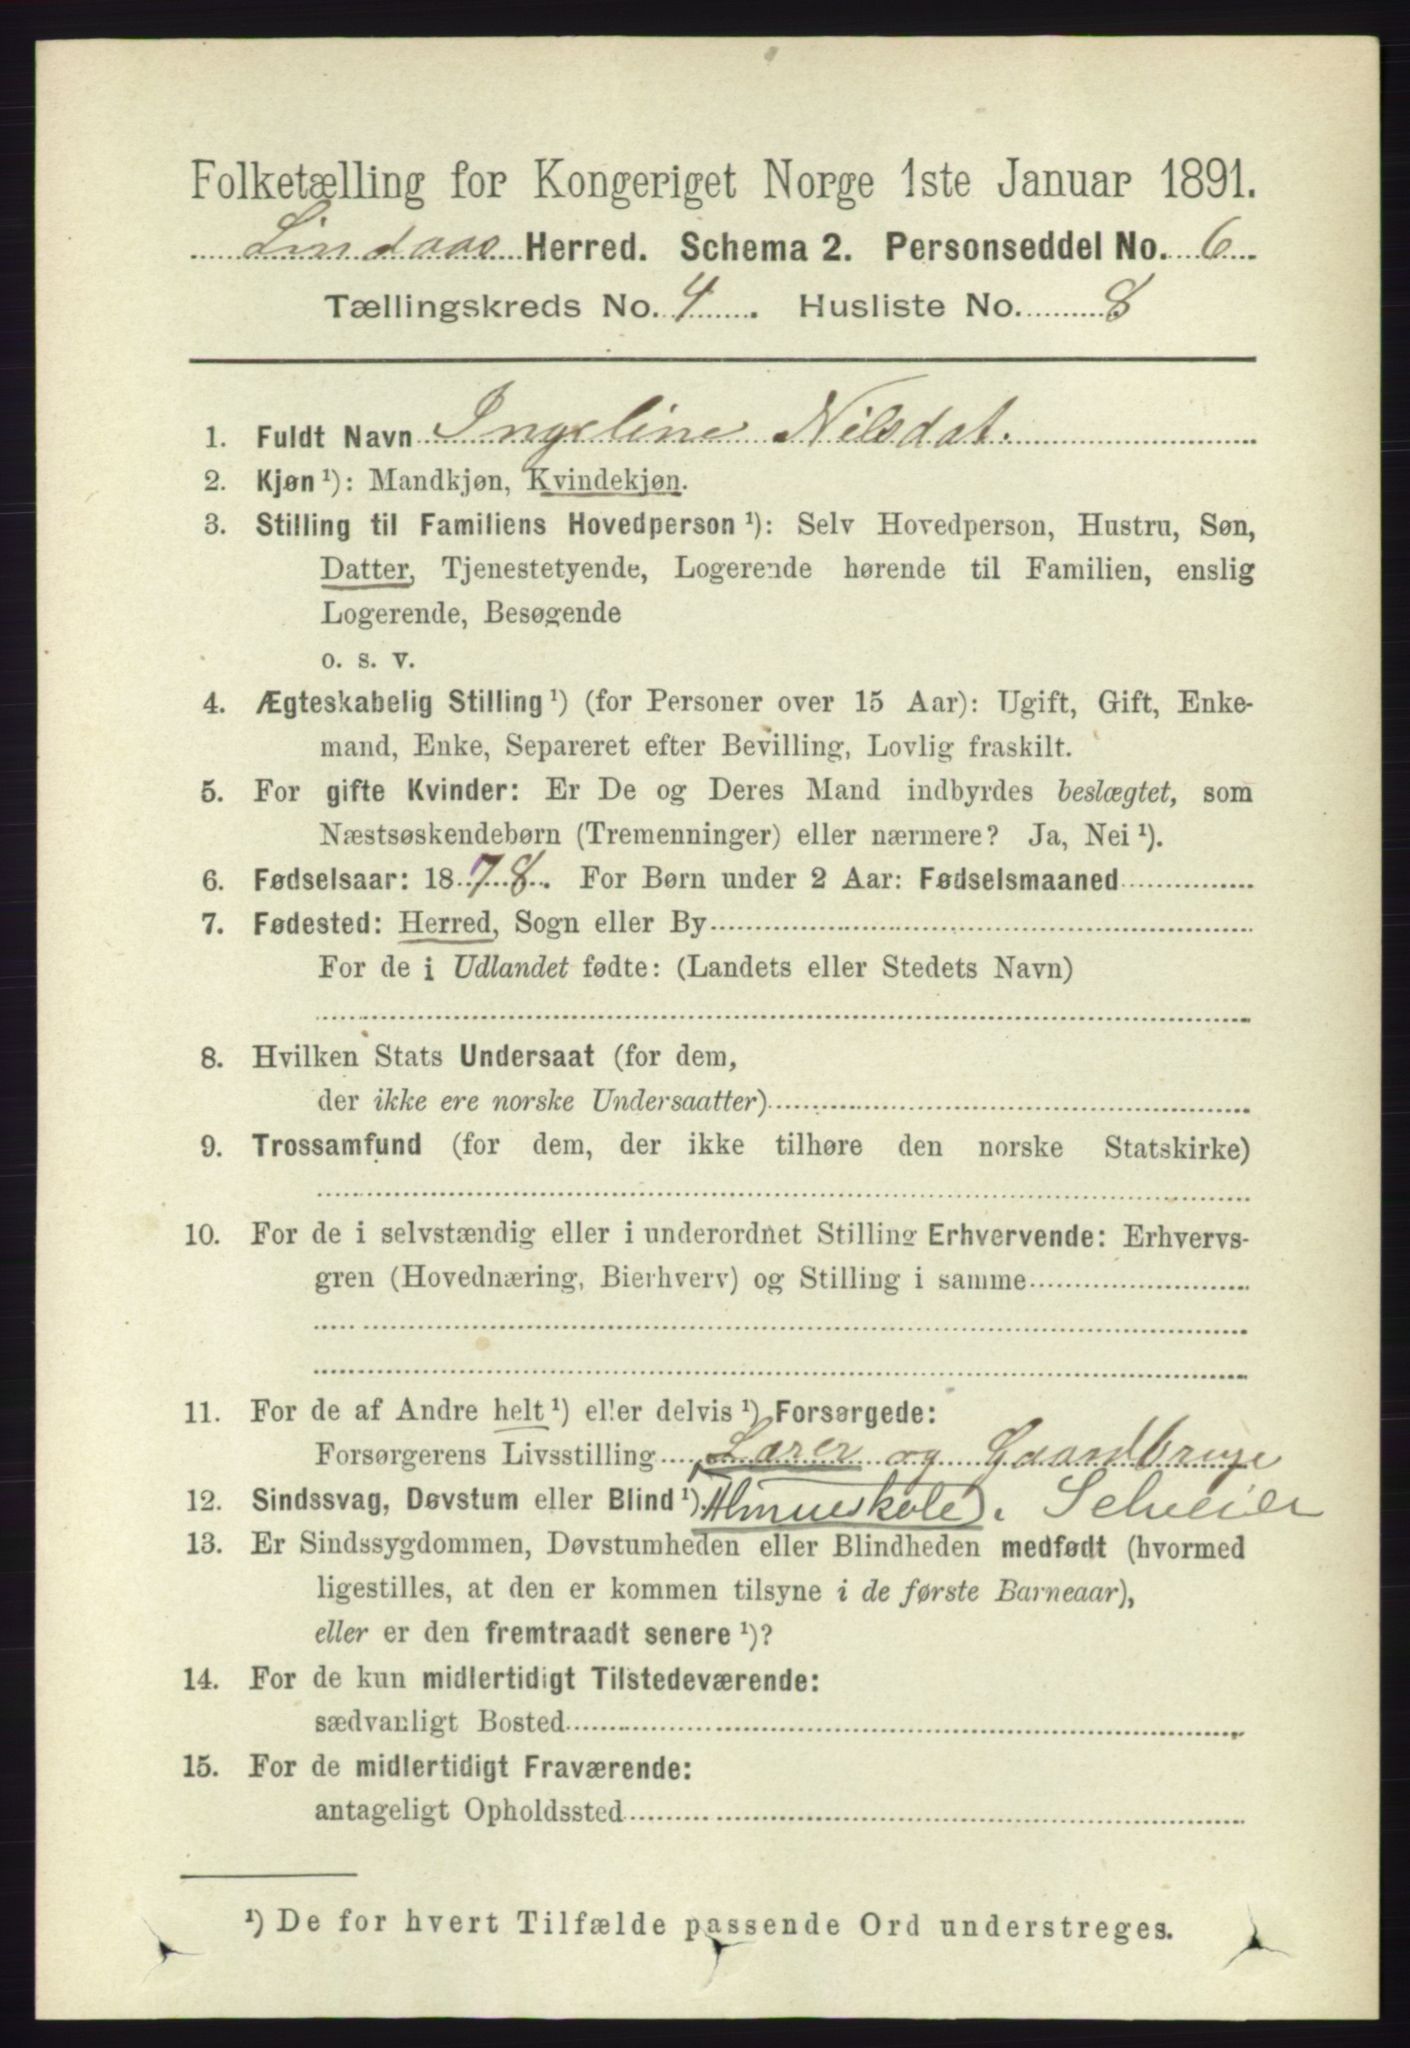 Folketælling for Kongeriget Norge 1ste Januar 1891.
Lindaas Herred. Schema 2. Personseddel No. 6
Tællingskreds No. 4. Husliste No. 8
1. Fuldt Navn Ingeline Nilsdat.
2. Kjøn ¹): Mandkjøn, Kvindekjøn.
3. Stilling til Familiens Hovedperson ¹): Selv Hovedperson, Hustru, Søn,
Datter, Tjenestetyende, Logerende hørende til Familien, enslig
Logerende, Besøgende
o. s. v.
4. Ægteskabelig Stilling ¹) (for Personer over 15 Aar): Ugift, Gift, Enke-
mand, Enke, Separeret efter Bevilling, Lovlig fraskilt.
5. For gifte Kvinder: Er De og Deres Mand indbyrdes beslægtet, som
Næstsøskendebørn (Tremenninger) eller nærmere? Ja, Nei ¹).
6. Fødselsaar: 1878. For Børn under 2 Aar: Fødselsmaaned
7. Fødested: Herred, Sogn eller By
For de i Udlandet fødte: (Landets eller Stedets Navn)
8. Hvilken Stats Undersaat (for dem,
der ikke ere norske Undersaatter)
9. Trossamfund (for dem, der ikke tilhøre den norske Statskirke)
10. For de i selvstændig eller i underordnet Stilling Erhvervende: Erhvervs-
gren (Hovednæring, Bierhverv) og Stilling i samme
11. For de af Andre helt ¹) eller delvis ¹) Forsørgede:
Forsørgerens Livsstilling Lærer og Gaardbruge
12. Sindssvag, Døvstum eller Blind ¹). Almueskole). Selveier
13. Er Sindssygdommen, Døvstumheden eller Blindheden medfødt (hvormed
ligestilles, at den er kommen tilsyne i de første Barneaar),
eller er den fremtraadt senere ¹)?
14. For de kun midlertidigt Tilstedeværende:
sædvanligt Bosted
15. For de midlertidigt Fraværende:
antageligt Opholdssted
¹) De for hvert Tilfælde passende Ord understreges.